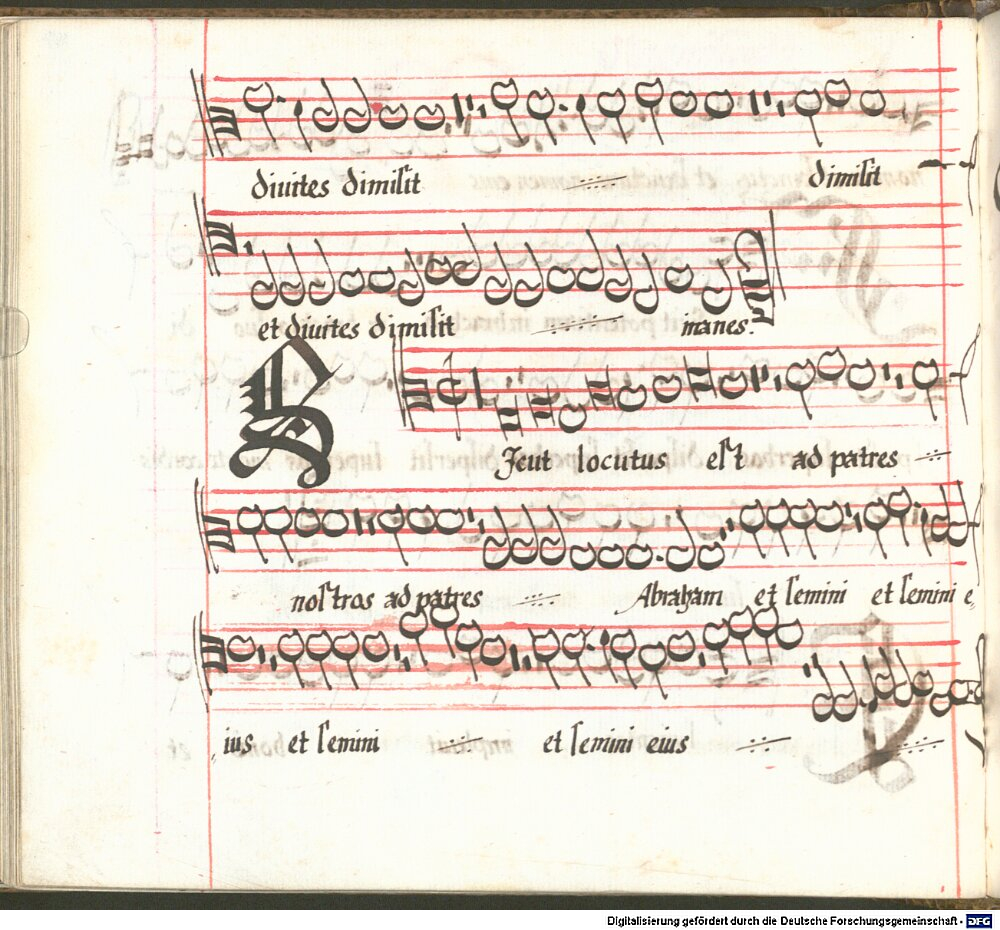 diuites dimisit dimisit
et diuites dimisit inanes.
Sicut locutus est ad patres
nostros ad patres Abraham et semini et semini e,
,ius et semini et semini eius
Digitalisierung gefördert durch die Deutsche Forschungsgemeinschaft - DFG